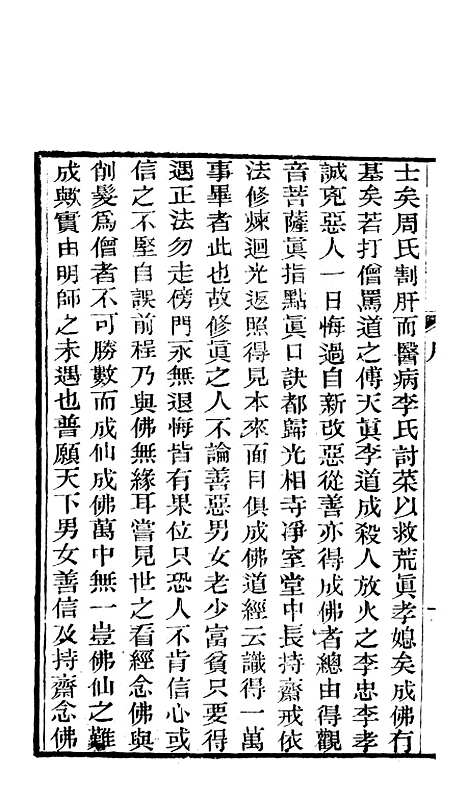 士矣周氏割肝而醫病李氏討菜以救荒眞孝媳矣成佛有
基矣若打僧罵道之傅天眞李道成殺人放火之李忠李孝
誠兇惡人一日悔過自新改惡從善亦得成佛者總由得觀
音菩薩眞指點眞口訣都歸光相寺淨室堂中長持齋戒依
法修煉迴光返照得見本來面目俱成佛道經云識得一萬
事畢者此也故修眞之人不論善惡男女老少富貧只要得
遇正法勿走傍門永無退悔皆有果位只恐人不肯信心或
信之不堅自誤前程乃與佛無緣耳嘗見世之看經念佛與
削髮爲僧者不可勝數而成仙成佛萬中無一豈佛仙之難
成歟實由明師之未遇也普願天下男女善信及持齋念佛